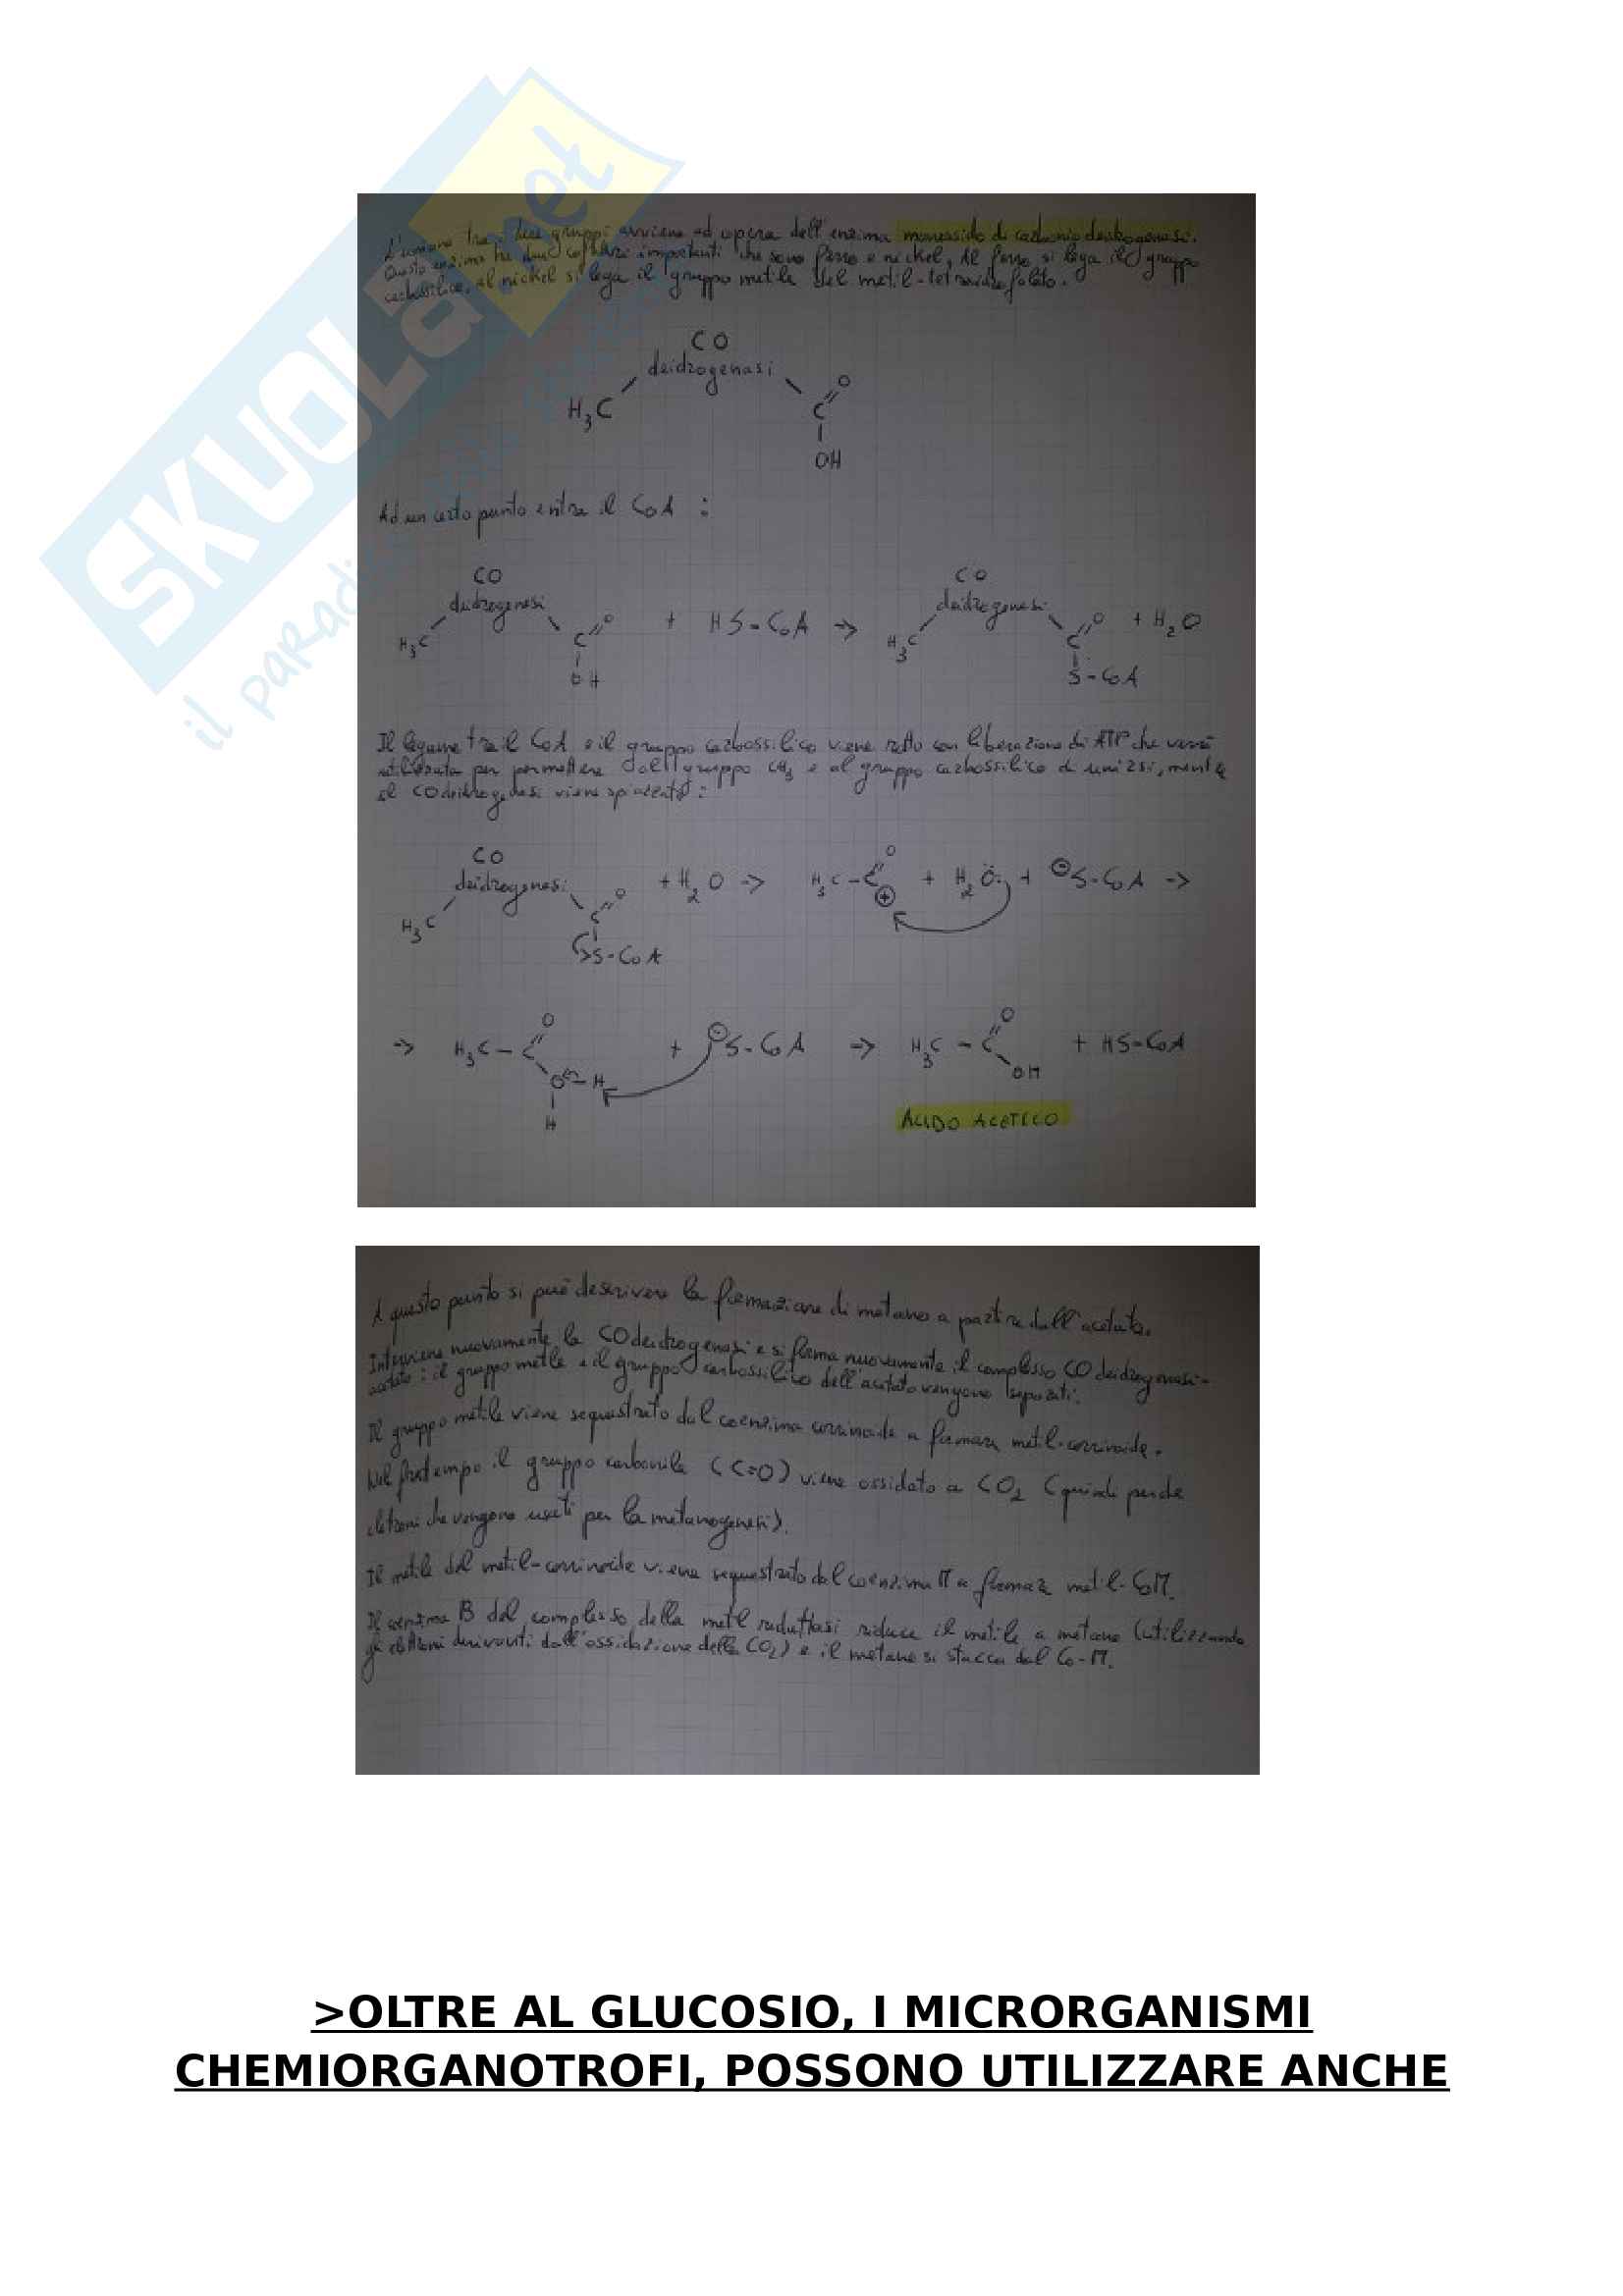 L'unione tra i due gruppi avviene ad opera dell'enzima monossido di carbonio deidrogenasi.
Questo enzima ha due cofattori importanti che sono ferro e nickel, al ferro si lega il gruppo
carbossilico, al nickel si lega il gruppo metile del metil-tetraidrofolato.
CO
deidrogenasi
H3C
C
O
OH
Ad un certo punto entra il CoA :
CO
deidrogenasi
H3C
C
O
OH
+ HS-CoA →
CO
deidrogenasi
H3C
C
O
S-CoA
+ H2O
Il legame tra il CoA e il gruppo carbossilico viene rotto con liberazione di ATP che verrà
utilizzata per permettere al gruppo CH3 e al gruppo carbossilico di unirsi, mentre
il CO deidrogenasi viene spiazzato :
CO
deidrogenasi
H3C
C
O
S-CoA
+ H2O →
H3C-C
O
⊕
+ H2O: + ⊖S-CoA →
→ H3C-C
O
O-H
H
+ ⊖S-CoA →
H3C-C
O
OH
+ HS-CoA
ACIDO ACETICO
A questo punto si può descrivere la formazione di metano a partire dall'acetato.
Interviene nuovamente la CO deidrogenasi e si forma nuovamente il complesso CO deidrogenasi-
acetato : il gruppo metile e il gruppo carbossilico dell'acetato vengono separati.
Il gruppo metile viene sequestrato dal coenzima corrinoide a formare metil-corrinoide.
Nel frattempo il gruppo carbonile (C=O) viene ossidato a CO2 (quindi perde
elettroni che vengono usati per la metanogenesi).
Il metile del metil-corrinoide viene sequestrato dal coenzima M a formare metil-CoM.
Il coenzima B del complesso della metil reduttasi riduce il metile a metano (utilizzando
gli elettroni derivanti dall'ossidazione della CO2) e il metano si stacca dal Co-M.
SKUOLA.net
il paradiso
>OLTRE AL GLUCOSIO, I MICRORGANISMI
CHEMIORGANOTROFI, POSSONO UTILIZZARE ANCHE